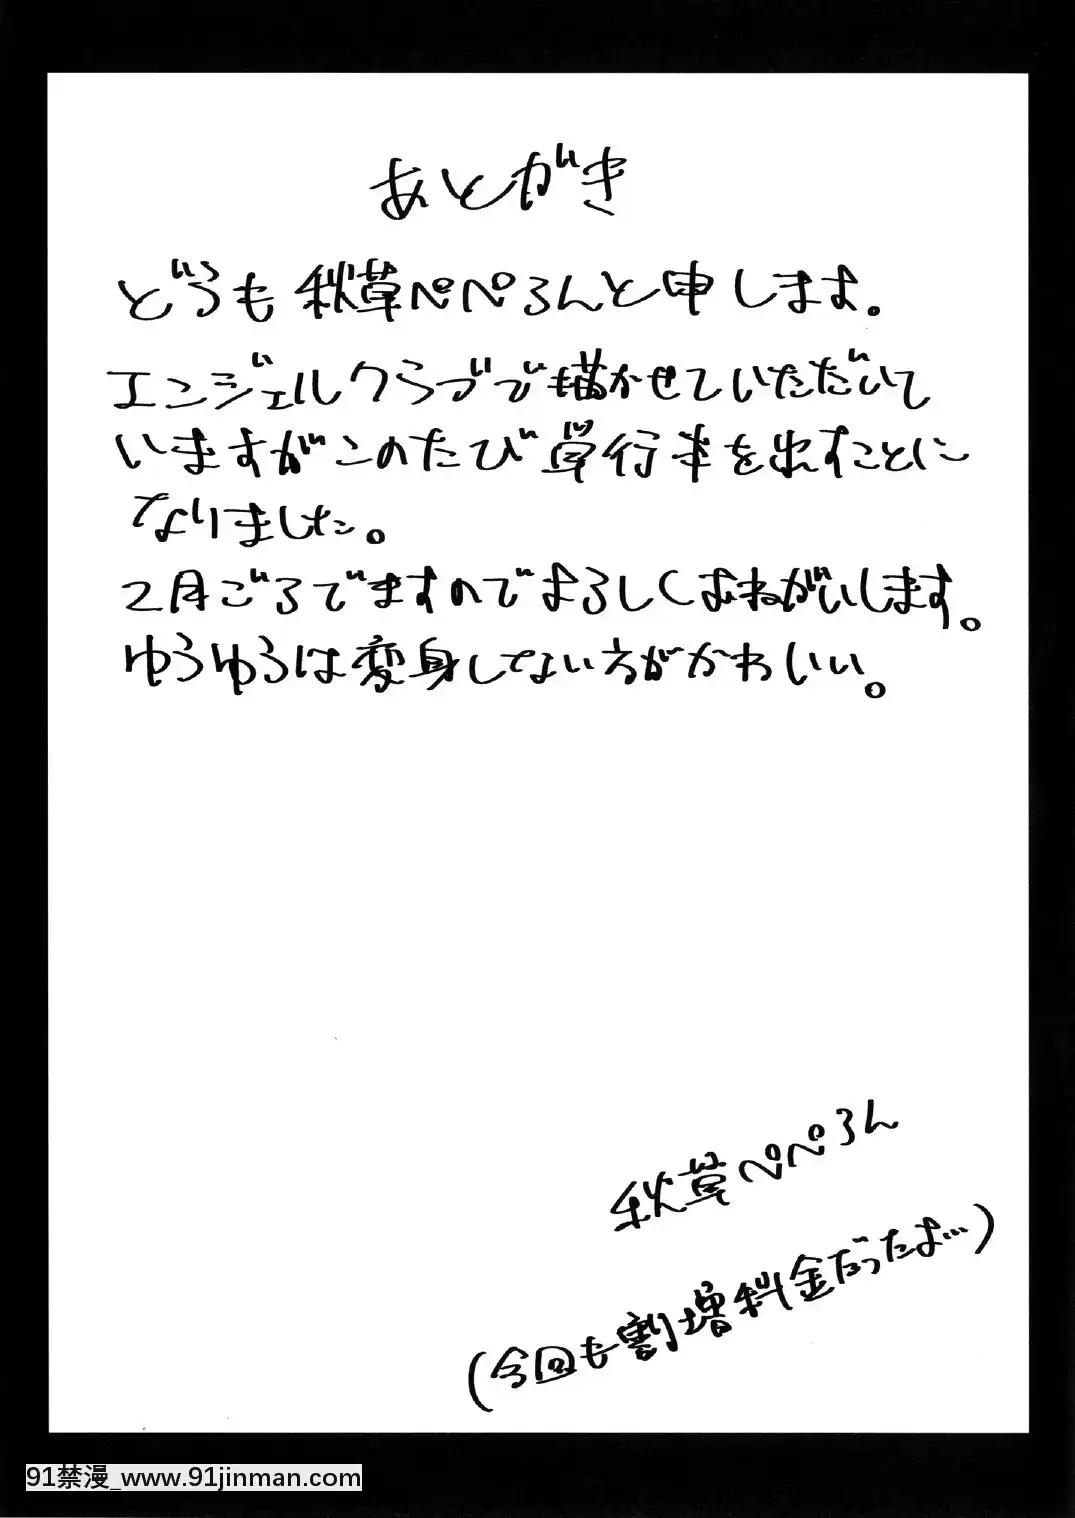 あとがき
どうも秋草ぺぺろんと申します。
エンジェルクラブで描かせていただいて
いますがこのたび単行本を出すことに
なりました。
2月ごろでますのでよろしくおねがいします。
ゆうゆうは変身してない方がかわいい。
秋草ぺぺろん
(今回も割増料金だったよ…)
91禁漫_www.91jinman.com